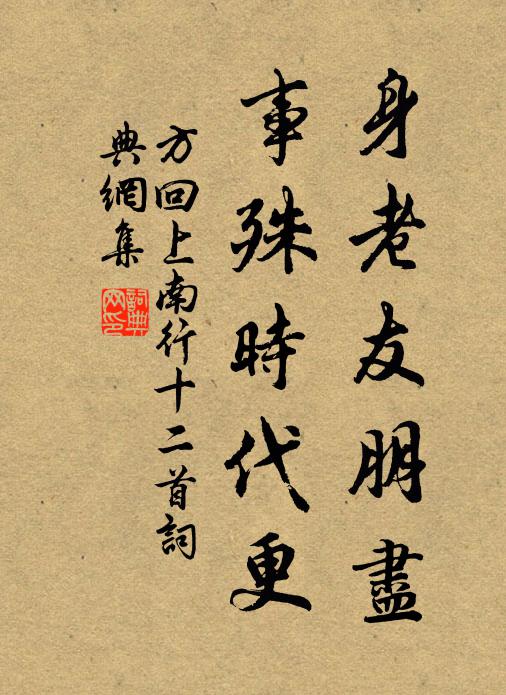 身老友朋盡
事殊時代更
方回上南行十二首詞
典網集
詞典網印